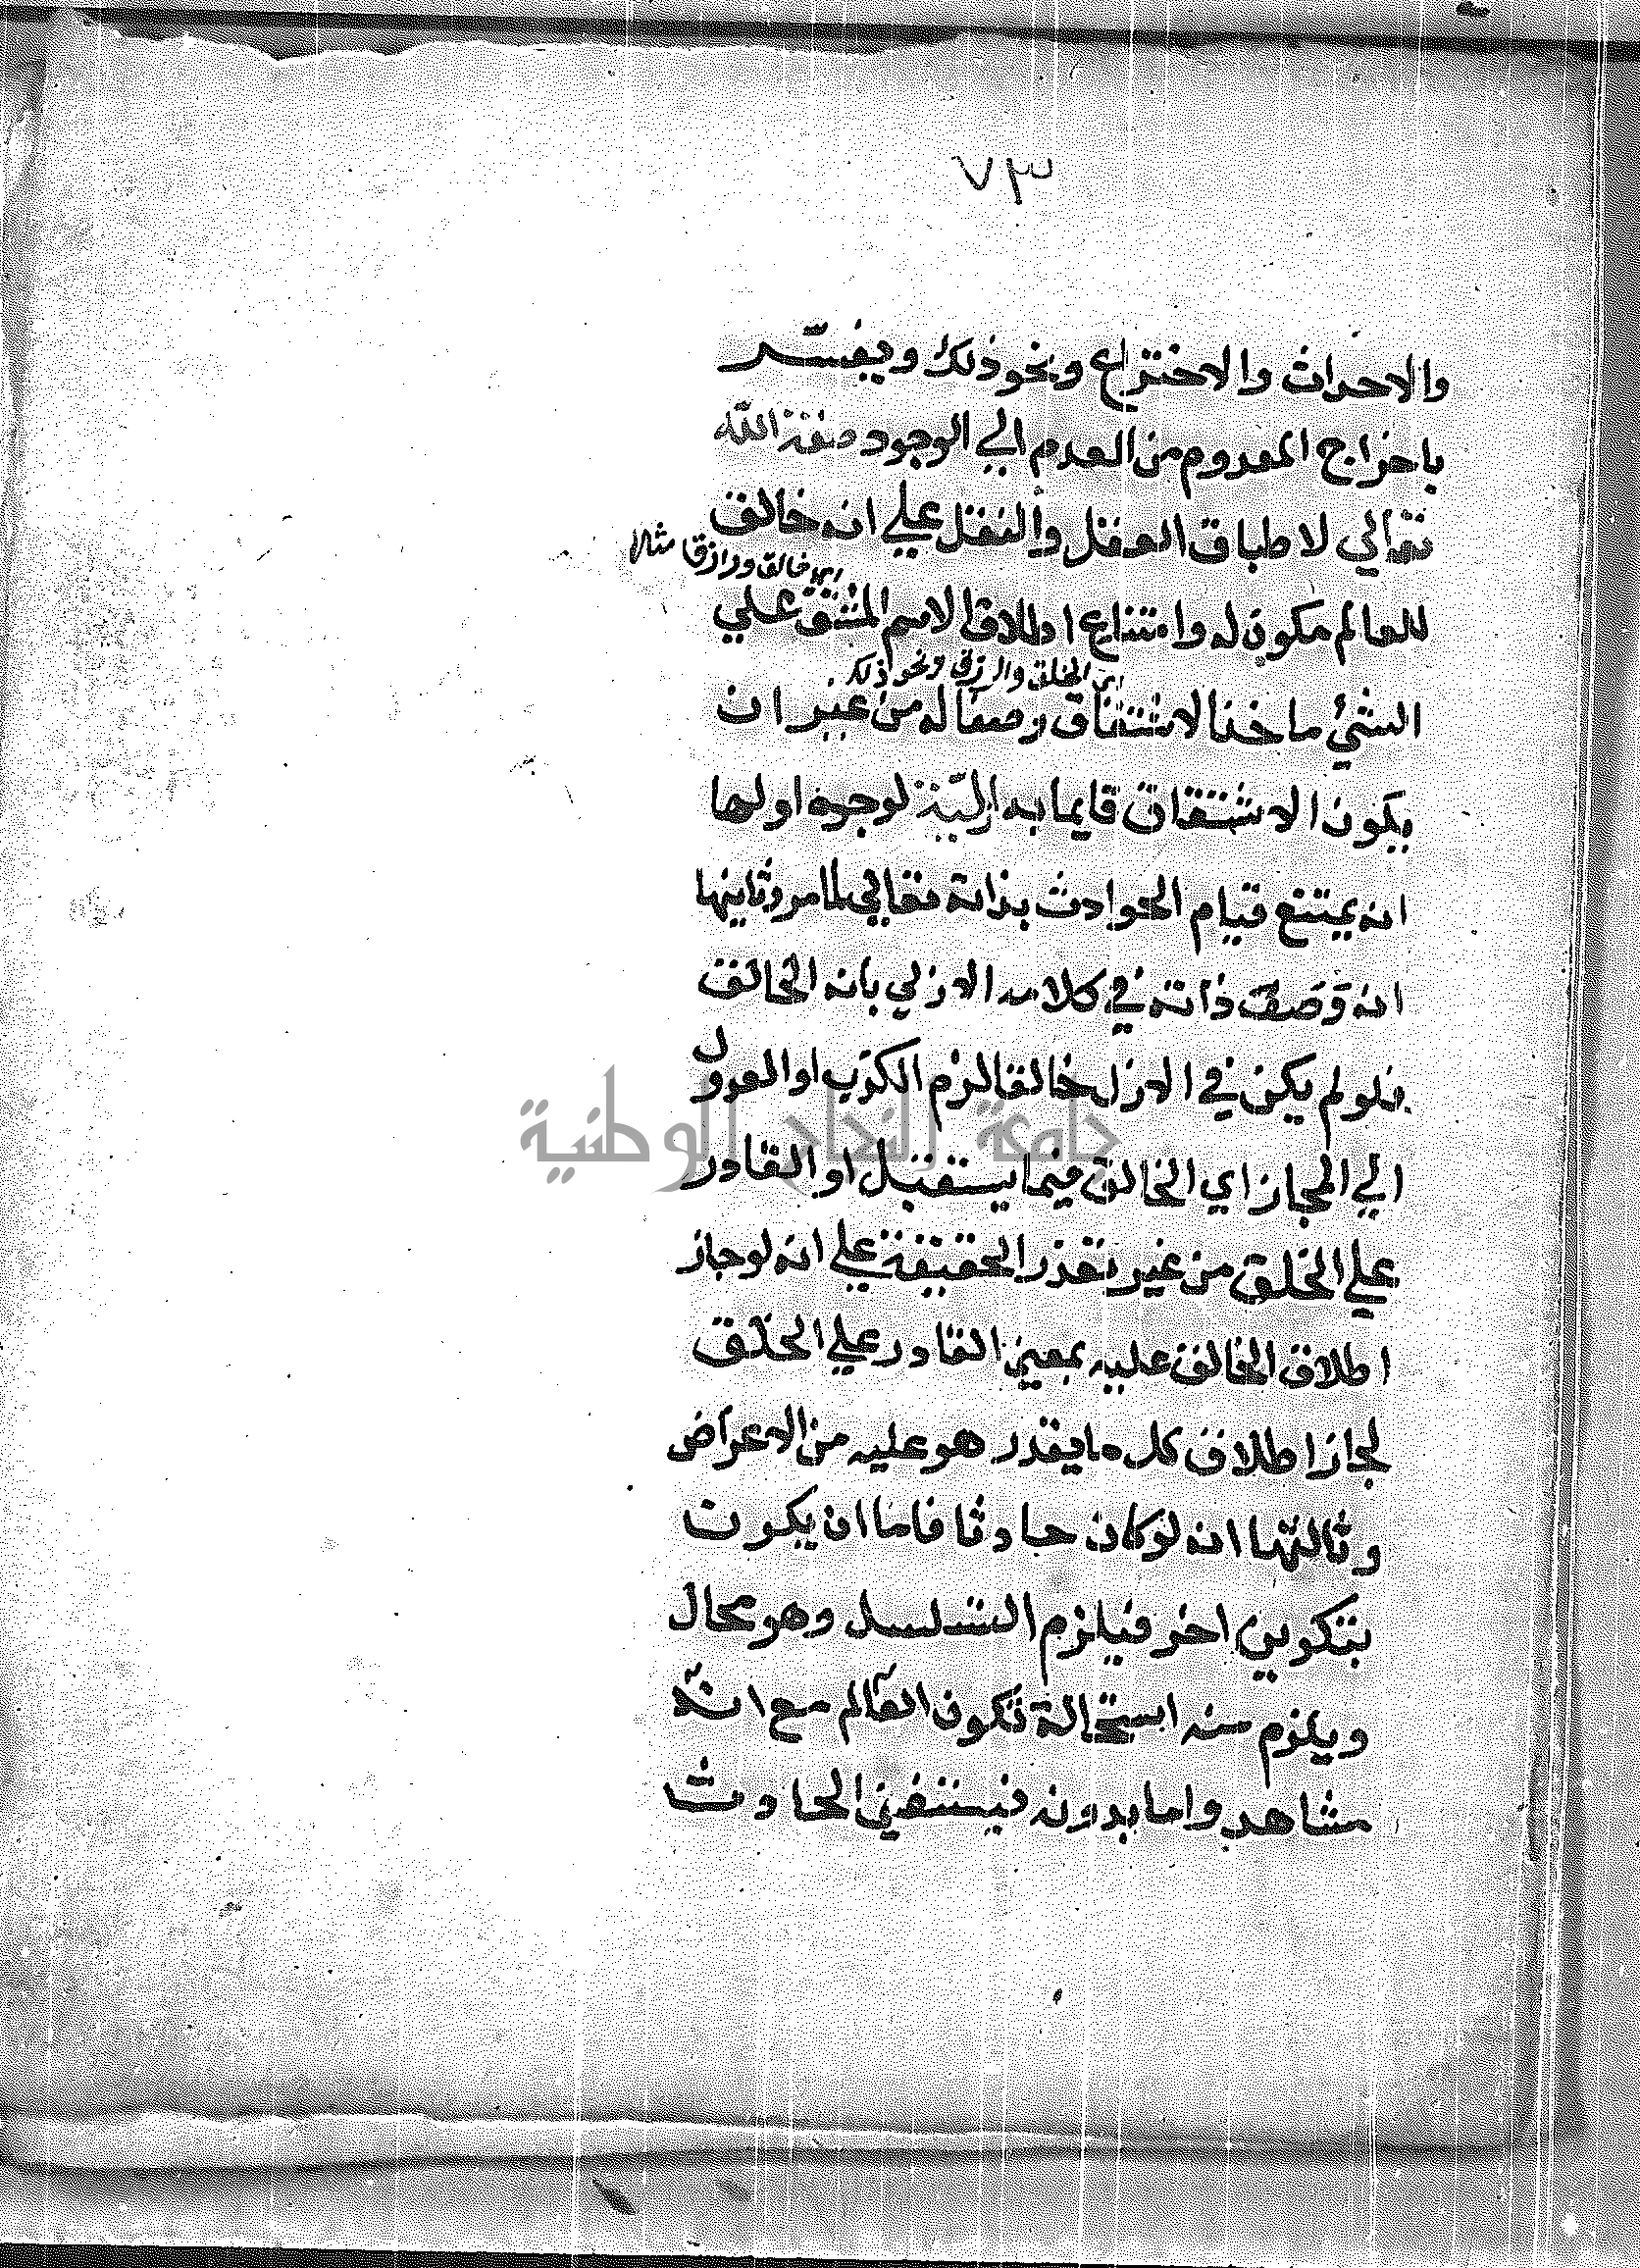 ٧٣
والاحداث والاختراع ونحو ذلك ويفسّر
باخراج المعدوم من العدم الي الوجود صفة الله
تعالي لاطباق العقل والنقل علي انه خالق
اي خالق ورازقا مثالا
للعالم مكون له وامتناع اطلاق الاسم المشتق علي
اي الخلق والرزق ونحو ذلك
الشئ ماخذ الاشتقاق وصفا له من غير ان
يكون الاشتقاق قايما به ازلية لوجوه اولها
انه يمتنع قيام الحوادث بذاته تعالي لما مر وثاينها
انه وصف ذاته في كلامه الازلي بانه الخالق
فلو لم يكن في الازل خالقا لزم الكذب او العدول
الي المجاز اي الخالق فيما يستقبل او القادر
علي الخلق من غير تعذر الحقيقة علي انه لو جاز
اطلاق الخالق عليه بمعني القادر علي الخلق
لجاز اطلاق كل ما يقدر هو عليه من الاعراض
وثالثها انه لو كان حادثا فاما ان يكون
بتكوين اخر فيلزم التسلسل وهو محال
ويلزم منه استحالة تكون العالم مع انه
مشاهد واما بدونه فيستغني الحادث
جامعة النجاح الوطنية